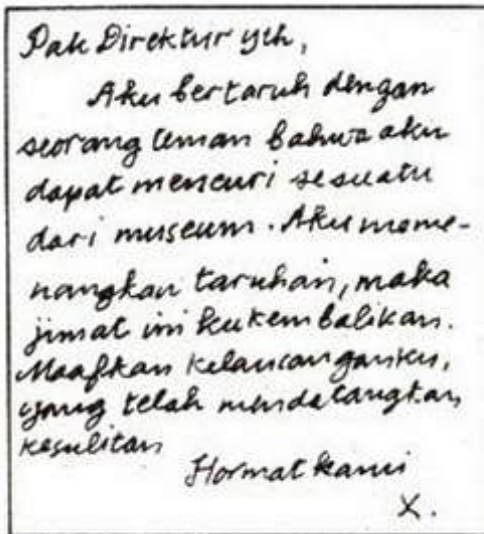 Pak Direktur yth,
Aku bertaruh dengan
seorang teman bahwa aku
dapat mencuri sesuatu
dari museum. Aku meme-
nangkan taruhan, maka
jimat ini kukembalikan.
Maafkan kelancanganku,
yang telah mendatangkan
kesulitan
Hormat kami
X.